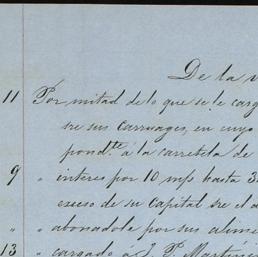 De la v
11 Por mitad de lo que se le carg
sre sus carruages, en cuyo
pond.te á la carretela de
9 " interes por 10 m/s hasta 3
" exceso de su Capital sre el d
" " abonadole por sus alime
13 " cargado á J. P. Martin